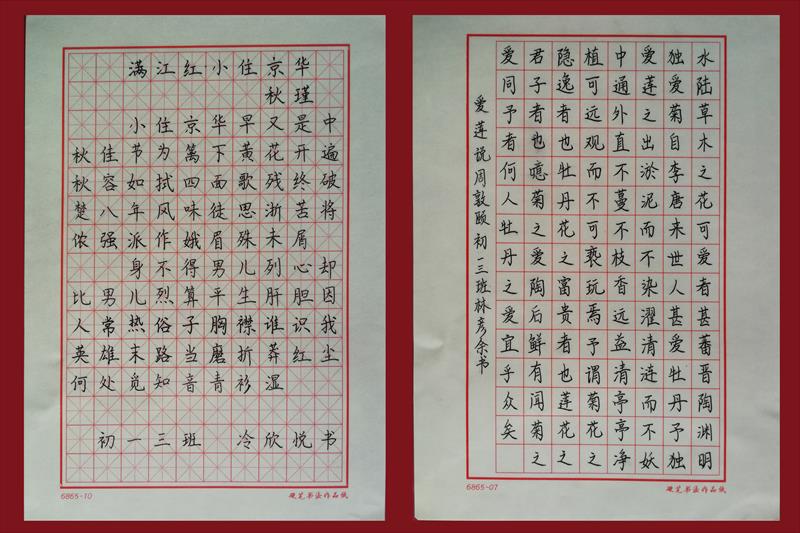 满江红小住京华
秋瑾
小住京华早又是中
秋佳节为篱下黄花开遍
秋容如拭四面歌残终破
楚八年风味徒思浙苦将
侬强派作娥眉殊未屑
身不得男儿列心却
比男儿烈算平生肝胆因
人常热俗子胸襟谁识我
英雄末路当磨折莽红尘
何处觅知音青衫湿
初一三班 冷欣悦书
6865-10
硬笔书法作品纸
水陆草木之花可爱者甚蕃晋陶渊明
独爱菊自李唐来世人甚爱牡丹予独
爱莲之出淤泥而不染濯清涟而不妖
中通外直不蔓不枝香远益清亭亭净
植可远观而不可亵玩焉予谓菊花之
隐逸者也牡丹花之富贵者也莲花之
君子者也噫菊之爱陶后鲜有闻菊之
爱同予者何人牡丹之爱宜乎众矣
爱莲说周敦颐初一三班林彦余书
6865-07
硬笔书法作品纸